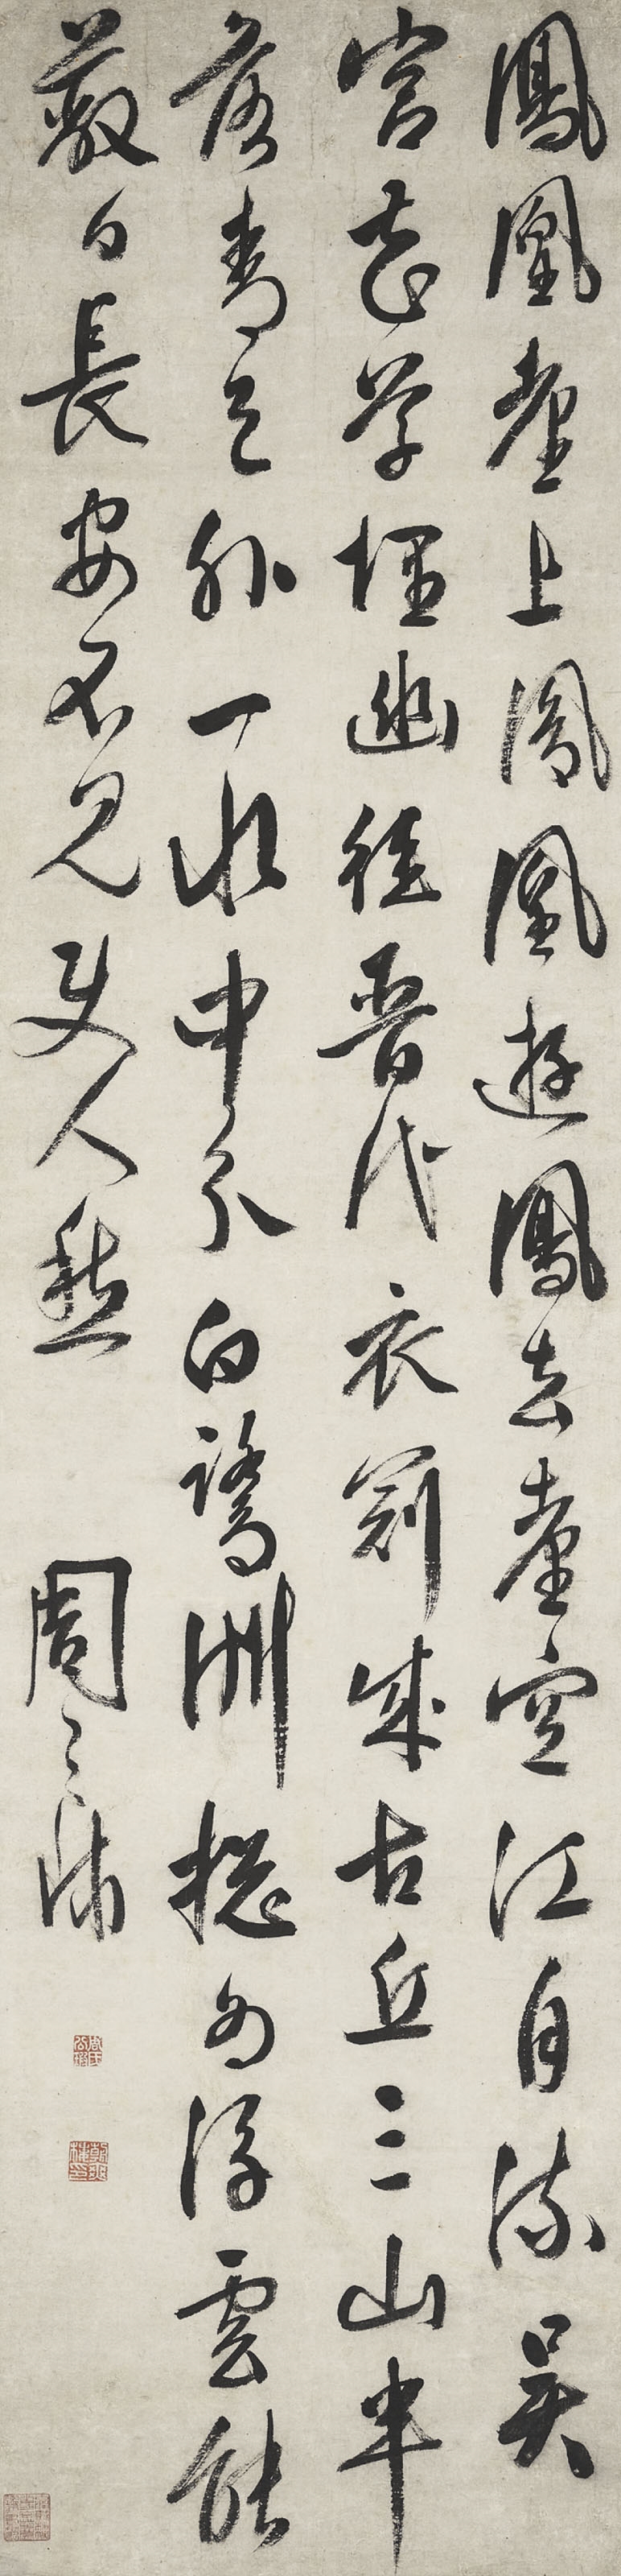 鳳凰臺上鳳凰遊鳳去臺空江自流吳
宮花草埋幽徑晉代衣冠成古丘三山半
落青天外一水中分白鷺洲揔為浮雲能
蔽日長安不見使人愁 周天球
周氏公瑕